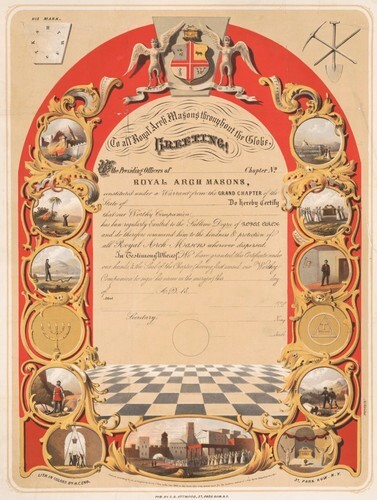 HIS MARK.
To all Royal Arch Masons throughout the Globe,
GREETING!
We the Presiding Officers of Chapter, No.
ROYAL ARCH MASONS,
constituted under a Warrant from the GRAND CHAPTER of the
State of Do hereby Certify
that our Worthy Companion
has been regularly Exalted to the Sublime Degree of ROYAL ARCH
and do therefore recommend him to the kindness & protection of
all Royal Arch Masons wherever dispersed.
In Testimony Whereof, We have granted this Certificate under
our hands & the Seal of the Chapter, having first caused our Worthy
Companion to sign his name in the margin, this day
of A.D. 18
Secretary
King
LITH. IN COLORS BY
37, PARK ROW. N.Y.
PUB. BY G. G. ATWOOD, 37, PARK ROW N.Y.